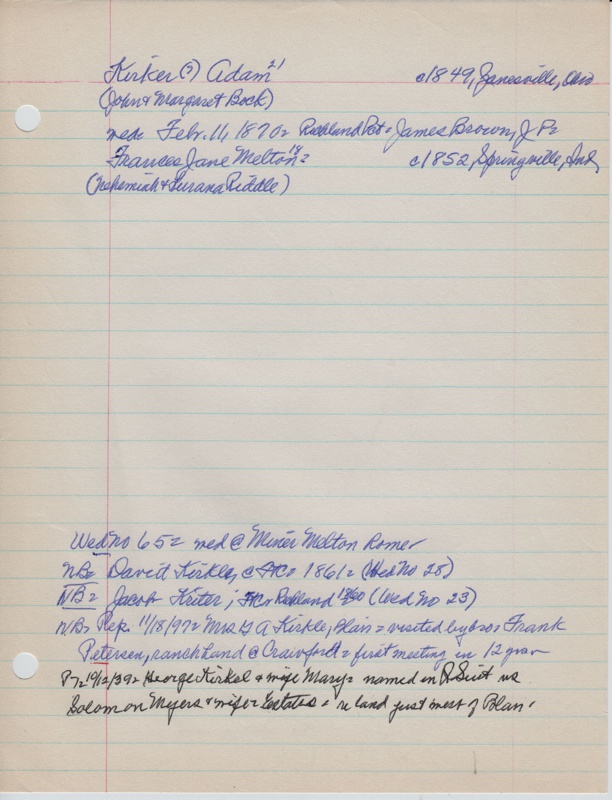 Kirker (?) Adam 21 c1849, Zanesville, Ohio
(John & Margaret Bock)
med= Febr. 11, 1870= Richland Pct= James Brown, J P=
Frances Jane Melton 18= c1852, Springville, Ind,
(Nehemiah & Riddle)
Wed No 65= med @ Miner Melton Rome
NB= David Kirkle, c 1861= (Wed No 28)
NB= Jacob Kriter; Richland 1860 (Wed No 23)
NB= Rep. 11/18/97= Mrs G A Kirkle, Blair= visited by bro= Frank
Petersen, ranch hand @ Crawford= first meeting in 12 years
George Kirkel & wife Mary= named in Suit vs
Solomon Meyers & wife= Estates= re land just west of Blair